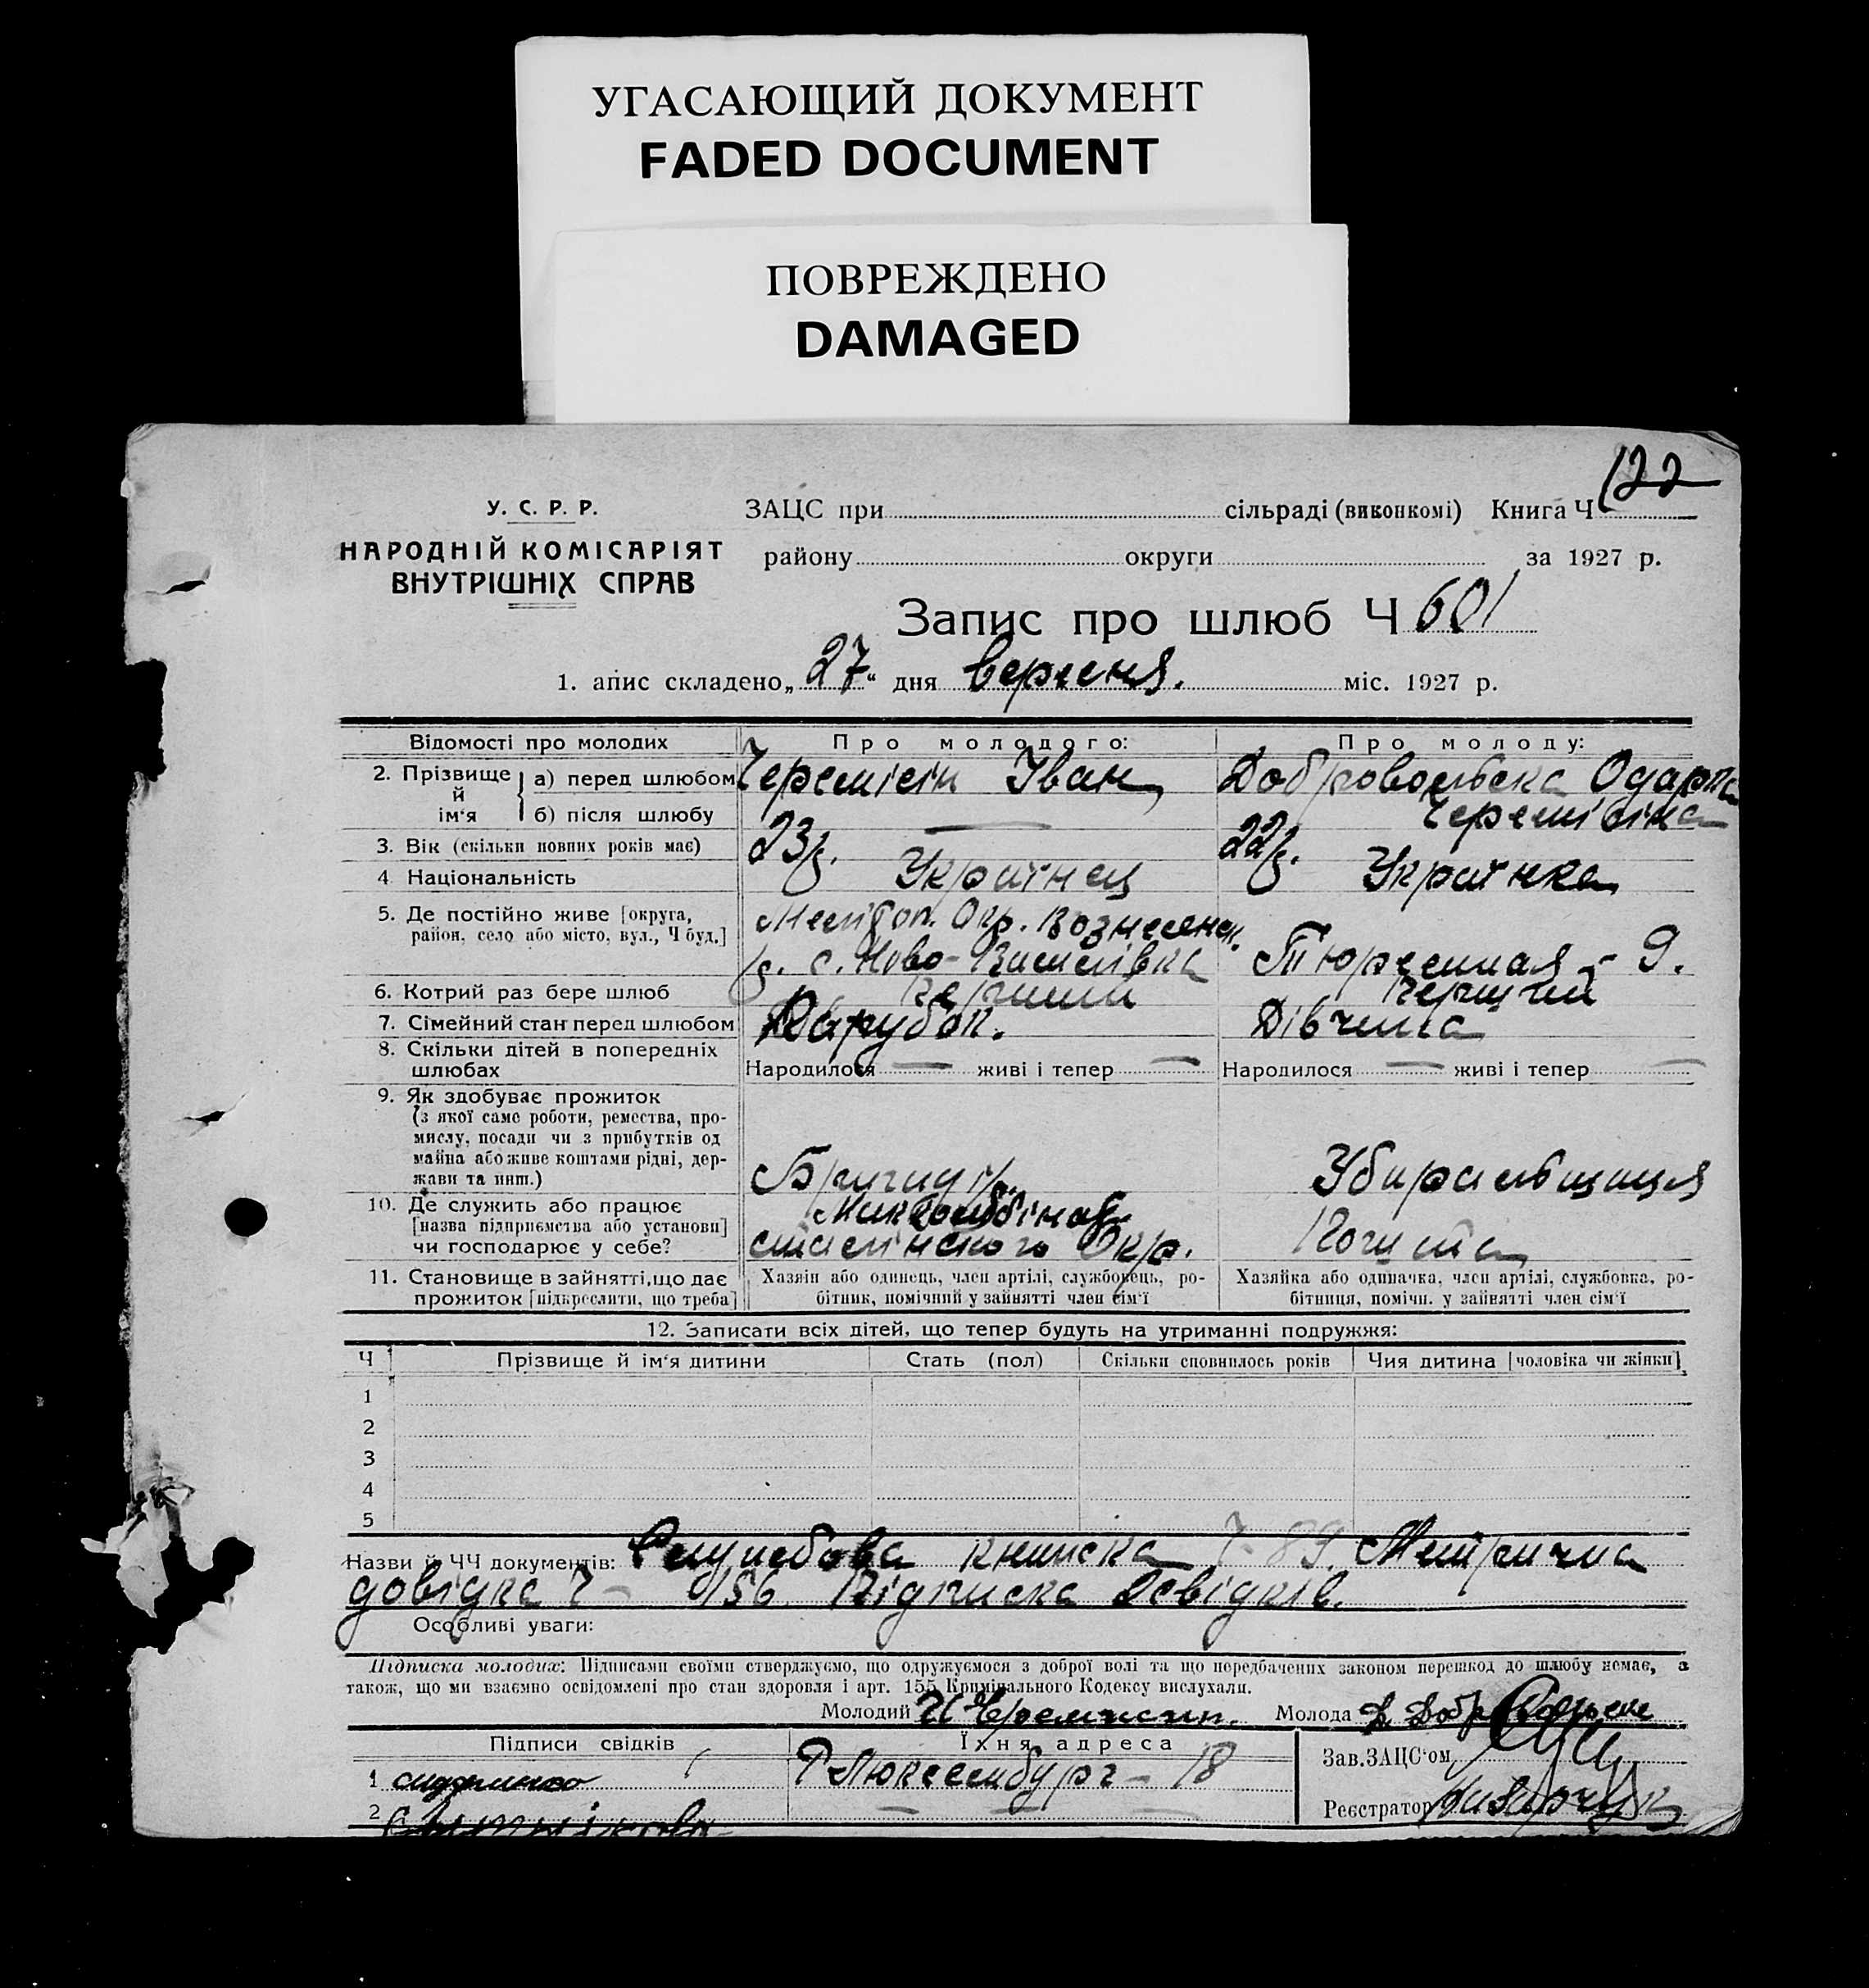 УГАСАЮЩИЙ ДОКУМЕНТ
FADED DOCUMENT
ПОВРЕЖДЕНО
DAMAGED
122
У. С. Р. Р.
НАРОДНІЙ КОМІСАРІЯТ
ВНУТРІШНІХ СПРАВ
ЗАЦС при сільраді (виконкомі) Книга Ч
району округи за 1927 р.
Запис про шлюб Ч 601
1. апис складено „27“ дня вересня. міс. 1927 р.
Відомості про молодих Про молодого: Про молоду:
2. Прізвище й ім‘я а) перед шлюбом Черемісін Іван Добровольська Одарка
б) після шлюбу — Черемісіна
3. Вік (скільки повних років має) 23 р. 22 р.
4. Національність Українец Українка
5. Де постійно живе [округа, район, село або місто, вул., Ч буд.] Меліtоп. Окр. Вознесенск.
р. с. Ново-Василівка Тюремная - 9.
6. Котрий раз бере шлюб Перший Перший
7. Сімейний стан перед шлюбом Парубок. Дівчина
8. Скільки дітей в попередніх шлюбах Народилося — живі і тепер — Народилося — живі і тепер —
9. Як здобуває прожиток
(з якої саме роботи, ремества, про-
мислу, посади чи з прибутків од
майна або живе коштами рідні, дер-
жави та инш.) Бригадір Убиральщиця
10. Де служить або працює
[назва підприємства або установи]
чи господарює у себе? сталінского Окр.
11. Становище в зайнятті, що дає
прожиток [підкреслити, що треба]
Хазяін або одинець, член артілі, службовець, ро-
бітник, помічний у зайнятті член сім‘ї
Хазяйка або одиначка, член артілі, службовка, ро-
бітниця, помічн. у зайнятті член сім‘ї
12. Записати всіх дітей, що тепер будуть на утриманні подружжя:
Ч Прізвище й ім‘я дитини Стать (пол) Скільки сповнилось років Чия дитина [чоловіка чи жінки]
1
2
3
4
5
Назви й ЧЧ документів: Службова книжка Ч-89. Метрична
довідка Ч- 156 Підписка Свідків.
Особливі уваги:
Підписка молодих: Підписами своїми стверджуємо, що одружуємося з доброї волі та що передбачених законом перешкод до шлюбу немає, а
також, що ми взаємно освідомлені про стан здоровля і арт. 155 Кримінального Кодексу вислухали.
Молодий И Черемисин. Молода
Підписи свідків Їхня адреса
Зав. ЗАЦС‘ом
1 Р Люксембург - 18
2 — — —
Реєстратор